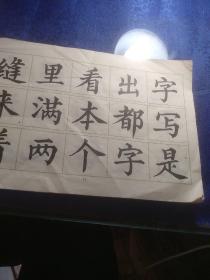 缝里看出字
来满本都写
着两个字是